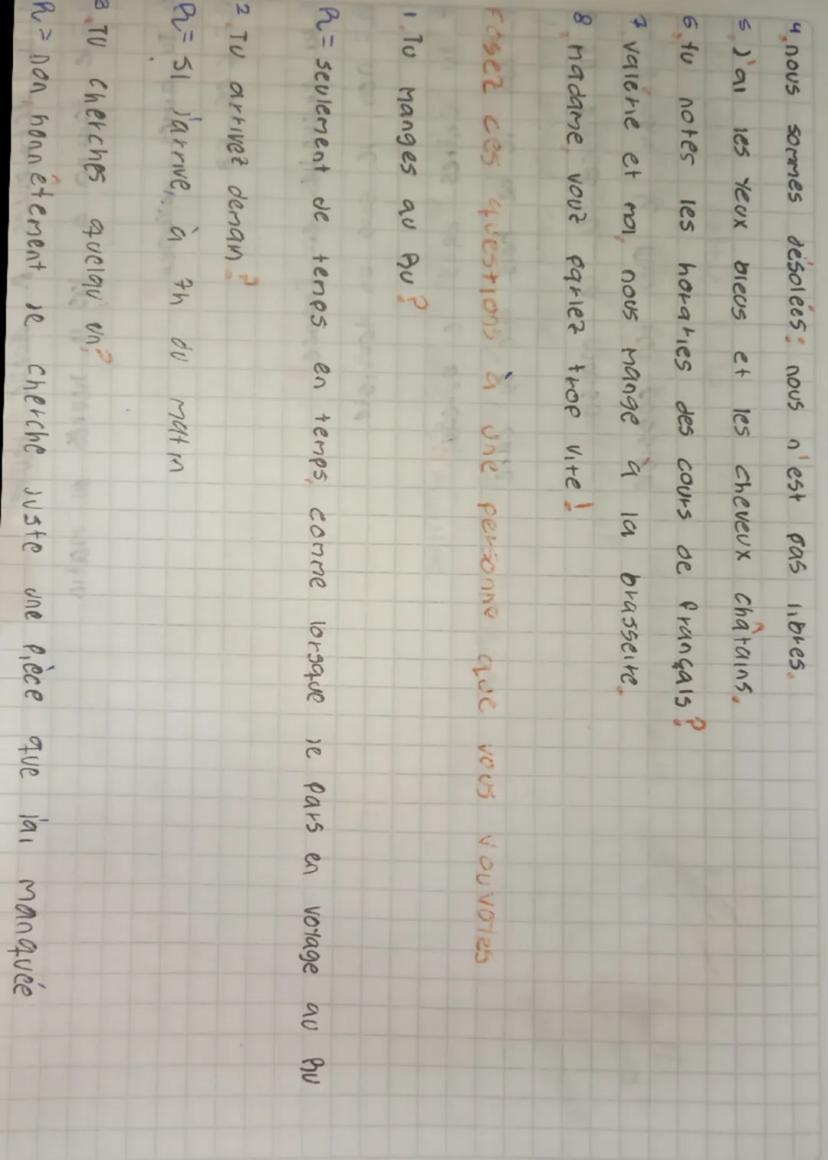 4. nous sommes désolées: nous n'est pas libres.
5. j'ai les yeux bleus et les cheveux châtains.
6. tu notes les horaries des cours de français?
7. valérie et moi, nous mange à la brasseire.
8. madame, vouz parlez trop vite!
Posez ces questions à une personne que vous vouvoies
1. Tu manges au RU?
R= seulement de temps en temps, comme lorsque je pars en voyage au RU
2. Tu arrivez deman?
R= SI j'arrive, à 7h du matin
3. Tu cherches quelqu un?
R= non, honnêtement, je cherche juste une pièce que j'ai manquée